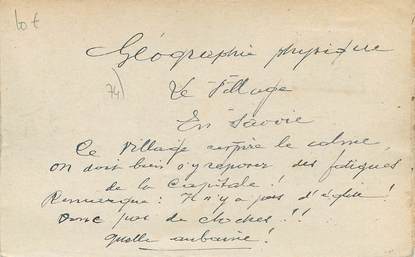 10 €
Géographie physique
74)
Le Village
En Savoie
Ce Village respire le calme,
on doit bien s'y reposer des fatigues
de la Capitale !
Remarque : Il n'y a pas d'église !
Donc pas de cloches !!
quelle aubaine !